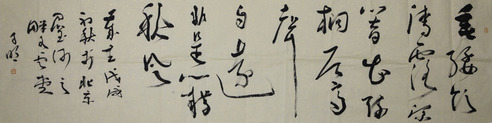 垂緌飲
清露流
響出疏
桐居高
聲
自遠
非是藉
秋風
歲在戊戌
初秋於北京